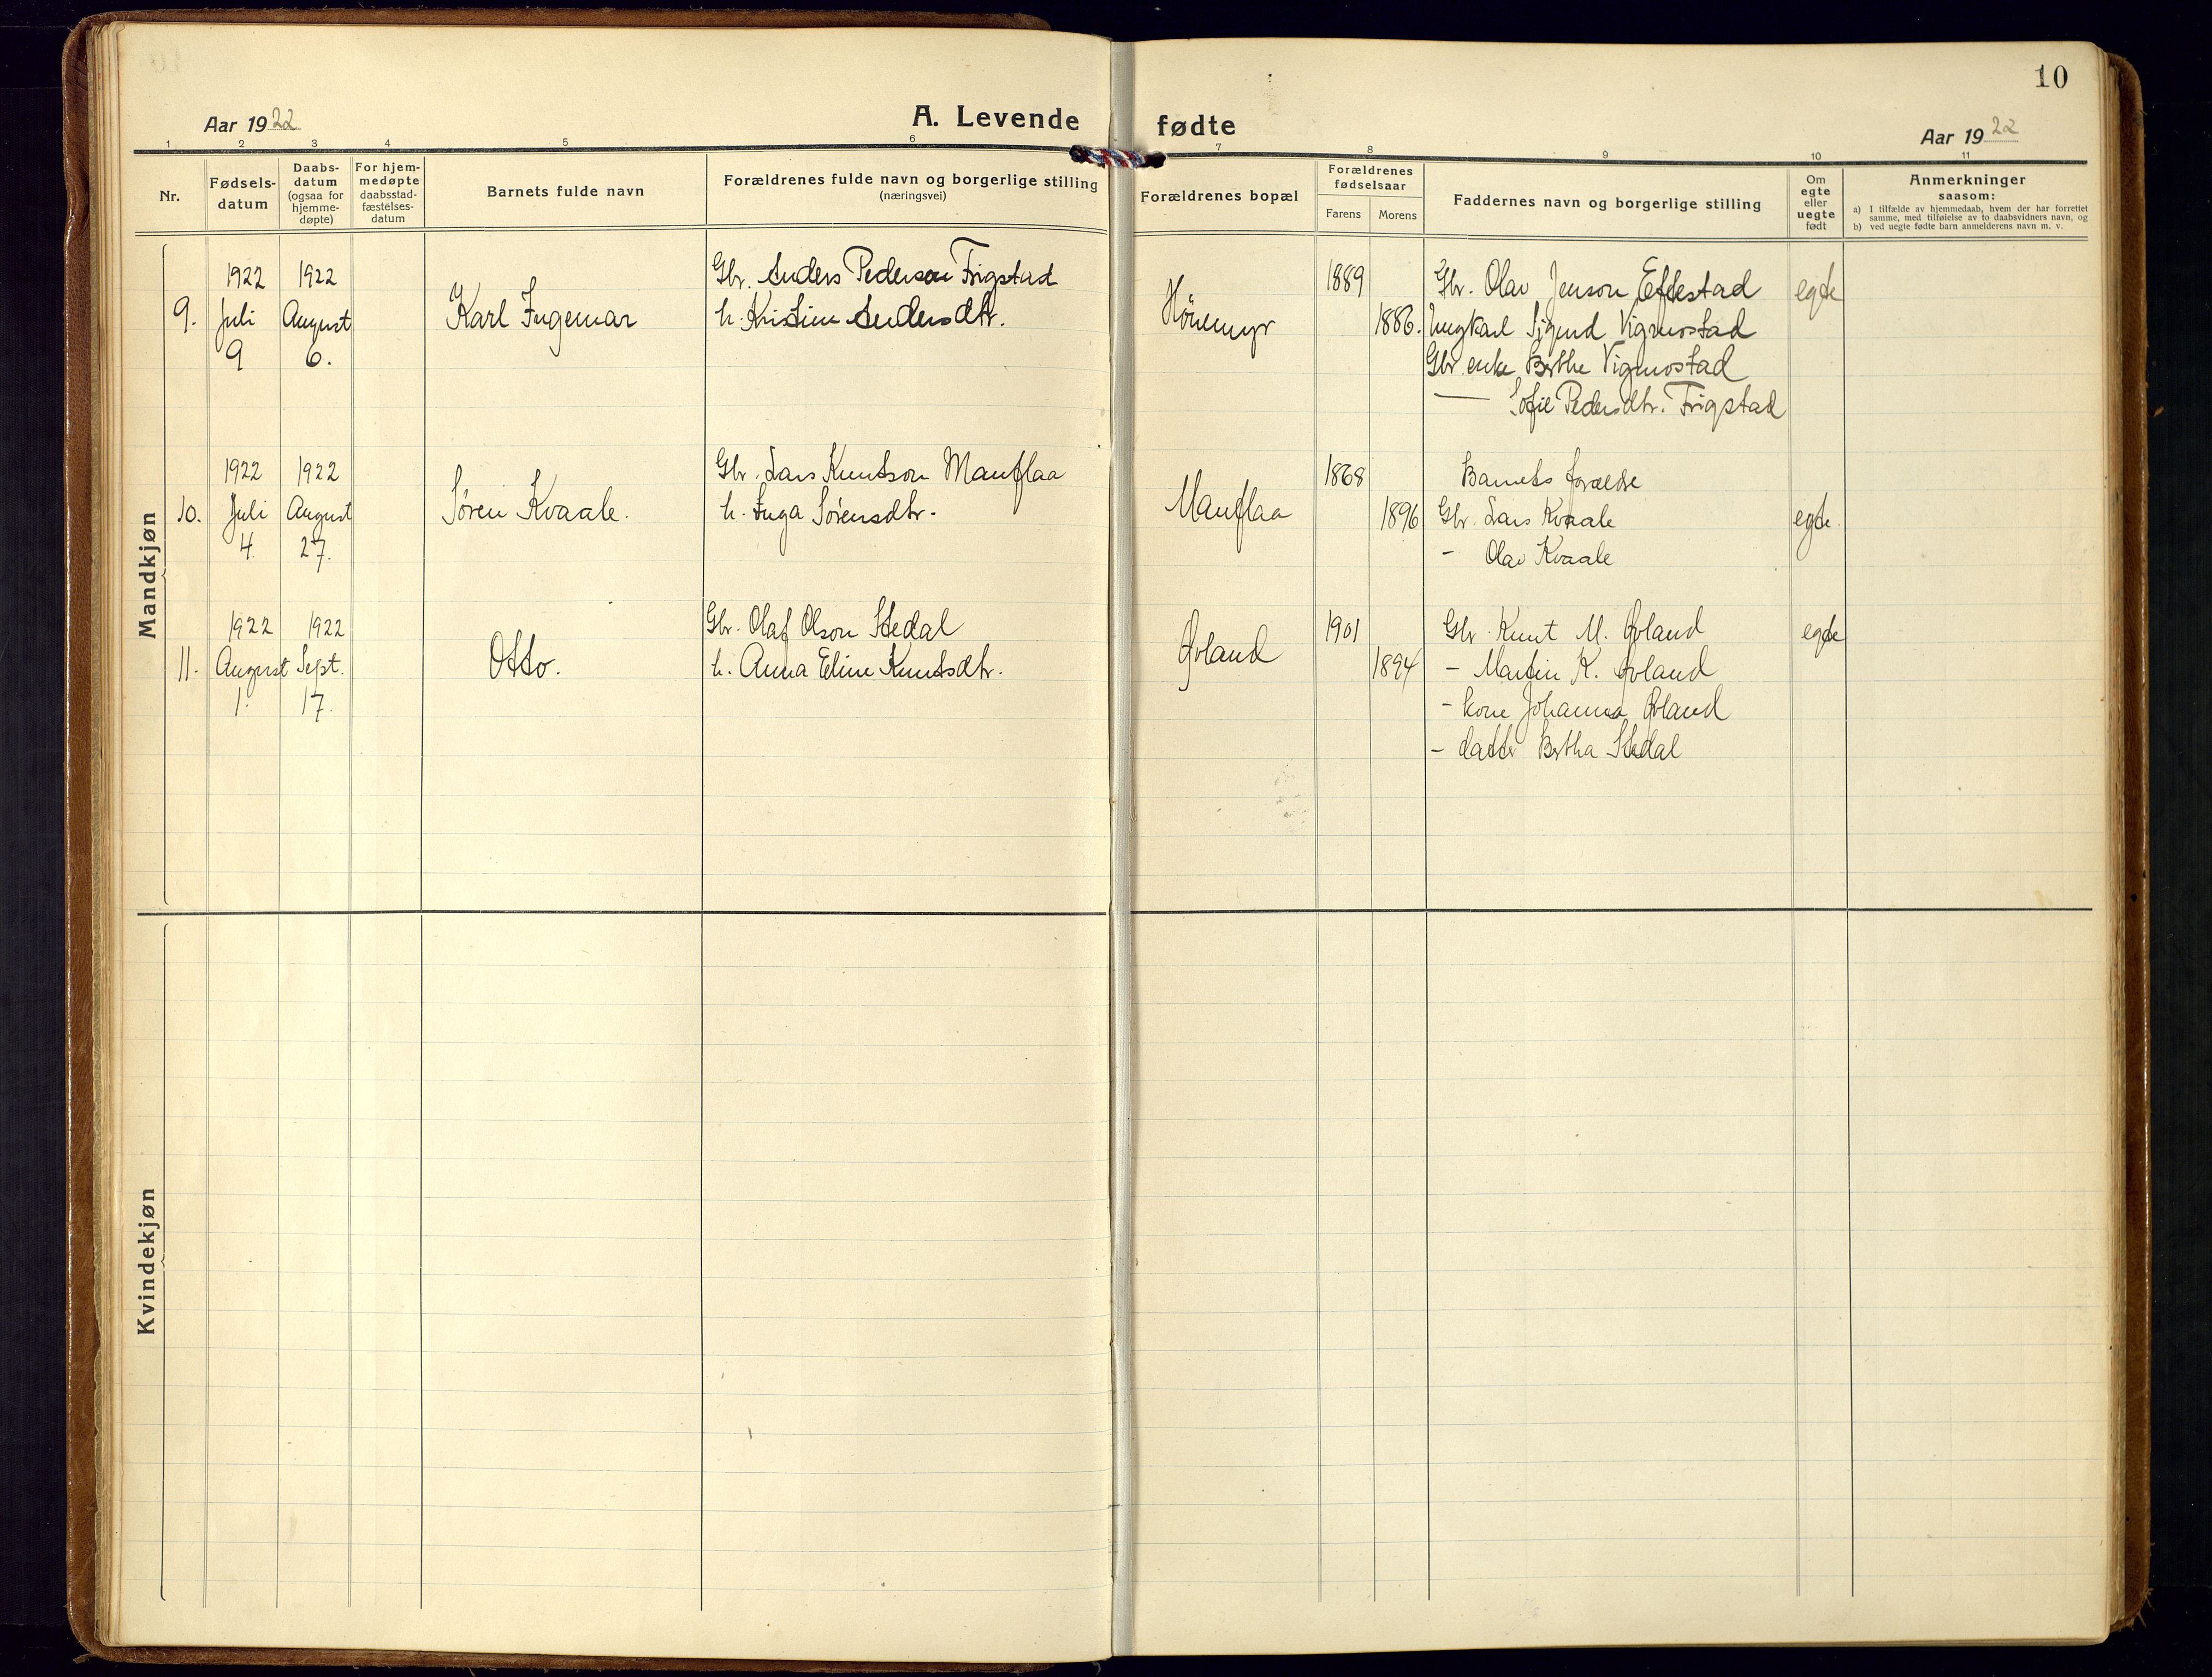 10
Aar 1922
A. Levende fødte
Aar 1922
1 2 3 4 5 6 7 8 9 10 11
Nr.
Fødsels-
datum
Daabs-
datum
(ogsaa for
hjemme-
døpte)
For hjem-
medøpte
daabsstad-
fæstelses-
datum
Barnets fulde navn
Forældrenes fulde navn og borgerlige stilling
(næringsvei)
Forældrenes bopæl
Forældrenes
fødselsaar
Farens Morens
Faddernes navn og borgerlige stilling
Om
egte
eller
uegte
født
Anmerkninger
saasom:
a) I tilfælde av hjemmedaab, hvem der har forrettet
samme, med tilføielse av to daabsvidners navn, og
b) ved uegte fødte barn anmelderens navn m. v.
Mandkjøn
9.
1922
Juli
9
1922
August
6.
Karl Ingemar
Gbr. Anders Pederson Frigstad
h. Kristine Andersdtr.
Hönemyr
1889
1886.
Gbr. Olav Jenson Eftestad
Ungkarl Sigurd Vigmostad
Gbr. enke Berthe Vigmostad
— Sofie Pedersdtr. Frigstad
egte
10.
1922
Juli
4.
1922
August
27.
Søren Kvaale.
Gbr. Lars Knutson Manflaa
h. Inga Sörensdtr.
Manflaa
1868
1896
Barnets forældre
Gbr. Lars Kvaale
- Olav Kvaale
egte.
11.
1922
August
1.
1922
Sept.
17.
Otto.
Gbr. Olaf Olson Stedal
h. Anna Eline Knutsdtr.
Øvland
1901
1894
Gbr. Knut M. Øvland
- Martin K. Øvland
- kone Johanna Øvland
- datter Bertha Stedal
egte
Kvindekjøn